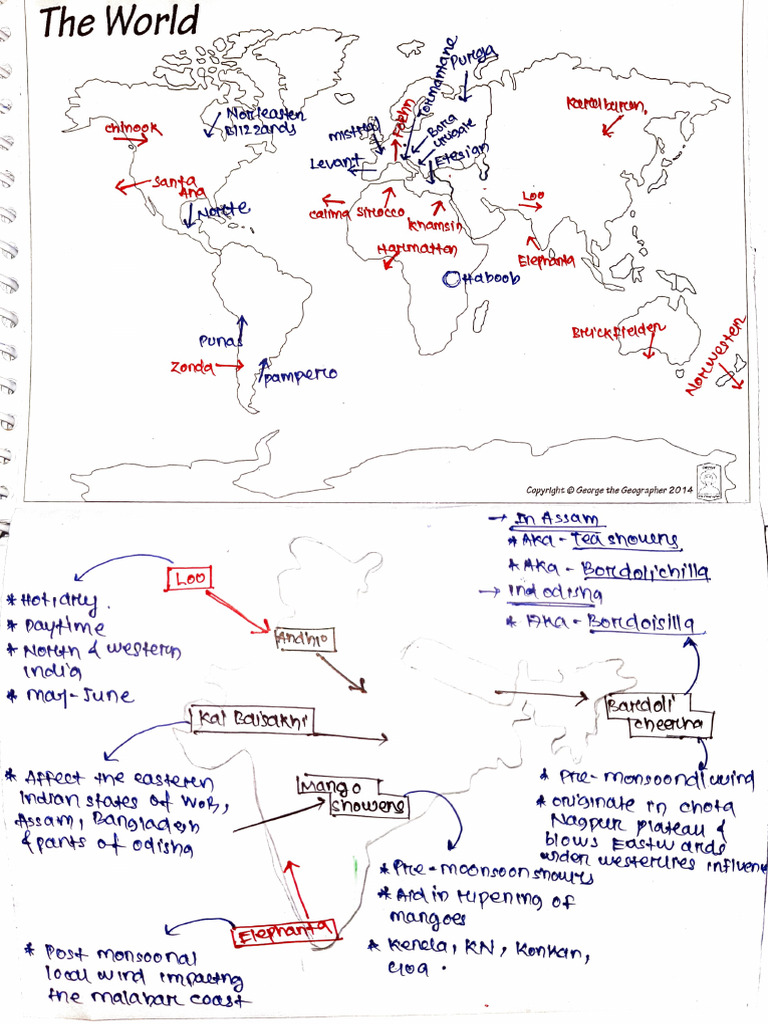 The World
Purga
Tormantane
Foehn
Noreastern
Blizzards
Chinook
Mistral
Bora
Levant
Etesian
Karaburan
Santa
Ana
Norte
Calima
Sirocco
Khamsin
Loo
Harmattan
Elephanta
Haboob
Punas
Zonda
Pampero
Brickfielder
Norwestern
Copyright © George the Geographer 2014
→ In Assam
* AKA - Tea showers
* AKA - Bordolichilla
→ In odisha
* AKA - Bordoisilla
Loo
* Hot, dry.
* Daytime
* North & western
India
* May-June
Andhio
Kal Baisakhi
Bardoli
cheerha
* Affect the eastern
Indian states of WoB,
Assam, Bangladesh
& parts of odisha
Mango
showers
* Pre-monsoondl wind
* originate in chota
Nagpur plateau &
blows Eastwards
under westerlires influence
* Pre-moonsoon showrs
* Aid in ripening of
mangoes
* Kerela, KN, Konkan,
Goa.
Elephanta
* Post monsoonal
local wind impacting
the malabar coast